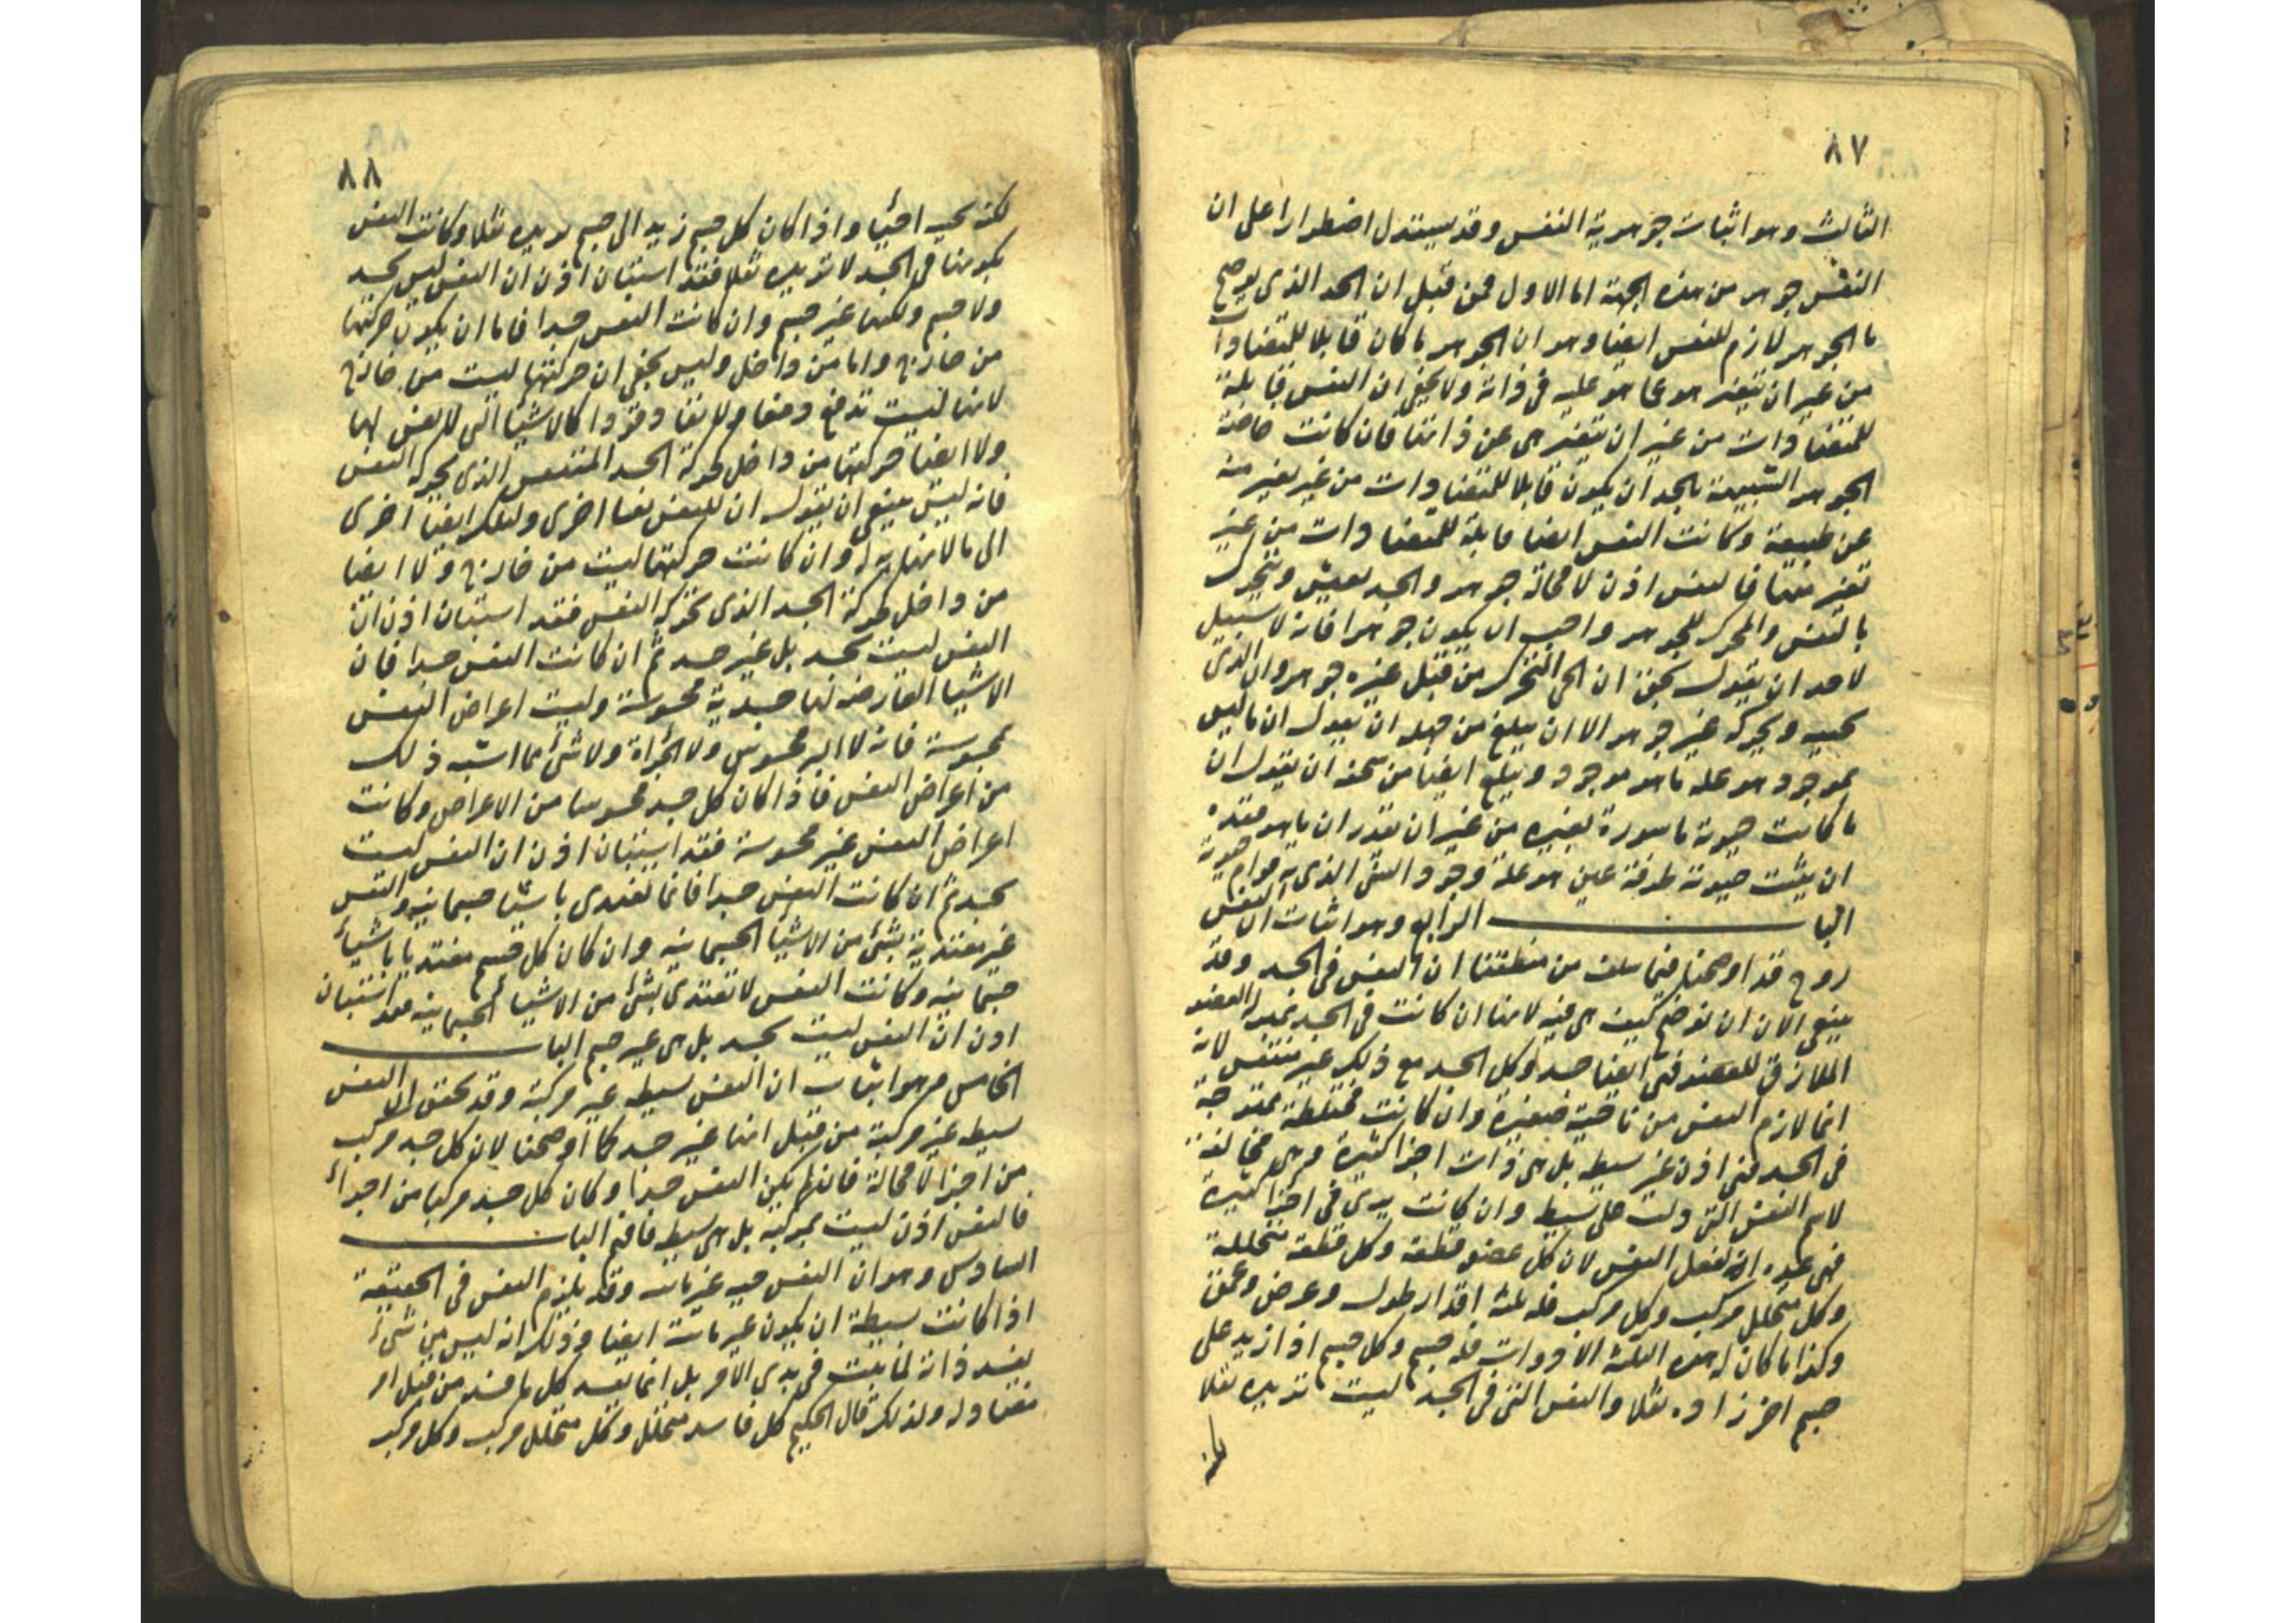 ٨٧
الثالث وهو اثبات جوهرية النفس وقد يستدل اضطرارا على ان
النفس جوهر من هذه الجهة اما الاول فمن قبل ان الحد الذى يوضح
ما الجوهر لازم للنفس ايضا وهو ان الجوهر ما كان قابلا للمتضادات
من غير ان يتغير هو عما هو عليه فى ذاته ولا يخفى ان النفس قابلة
للمتضادات من غير ان تتغير هى عن ذاتها فان كانت خاصة
الجوهر الشبيهة بالحد ان يكون قابلا للمتضادات من غير تغير منه
عن طبيعته وكانت النفس ايضا قابلة للمتضادات من غير
تغير منها فالنفس اذن لا محالة جوهر والجسد يعيش ويتحرك
بالنفس والمحرك للجوهر واجب ان يكون جوهرا فانه لا سبيل
لاحد ان يقول بحق ان الحى المتحرك من قبل غيره جوهر وان الذى
يحييه ويحركه غير جوهر الا ان يبلغ من جهله ان يقول ان ما ليس
بموجود هو علة ما هو موجود ويبلغ ايضا من سخفه ان يقول ان
ما كانت حيوته ماسورة بغيره من غير ان يقدر ان ما هو مقيده
ان يثبت حيوته طرفة عين هو علة وجود الشئ الذى به قوام حيوته
البا ـــــ الرابع وهو اثبات ان النفس
روح قد اوضحنا فيما سلف من منطقنا ان النفس فى الجسد وقد
ينبغى الان ان نوضح كيف هى فيه لانها ان كانت فى الجسد بمنزلة العضو
الملازق للعضو فهى ايضا جسد وكل الجسد مع ذلك غير متنفس لانه
انما لازم النفس من ناحية صغيرة وان كانت مختلطة ممتزجة
فى الجسد فهى اذن غير بسيطه بل هى ذات اجزا كثيرة وهى مخالفة
لاسم النفس التى دلت على بسيط وان كانت يرى فى اجزا كثيرة
فهى لان كل عضو قطعة وكل قطعة متحللة
وكل متحلل مركب وكل مركب فله ثلثة اقدار طول وعرض وعمق
وكذا ما كان له هذه الثلثة الادوات فله جسم وكل جسم اذا زيد على
جسم اخر زاده ثقلا والنفس التى فى الجسد ليست تزيده ثقلا
٨٨
لكنه يحيى احيا واذا كان كل جسم زيد الى جسم يزيده ثقلا وكانت النفس
بكونها فى الجسد لا تزيده ثقلا فقد استبان اذن ان النفس ليس بجسد
ولا جسم ولكنها غير جسم وان كانت النفس جسدا فاما ان يكون حركتها
من خارج واما من داخل وليس يخفى ان حركتها ليست من خارج
لانها ليست تدفع دفعا ولا تقاد قودا كالاشيا التى لا نفس لها
ولا ايضا حركتها من داخل كحركة الجسد المتنفس الذى تحركه النفس
فانه ليس ينبغى ان يقول ان للنفس نفسا اخرى ولتلك ايضا اخرى
الى ما لا نهاية له وان كانت حركتها ليست من خارج ولا ايضا
من داخل كحركة الجسد الذى تحركه النفس فقد استبان اذن ان
النفس ليست بجسد بل غير جسد ثم ان كانت النفس جسدا فان
الاشيا العارضه لها جسدية محسوسة وليست اعراض النفس
بمحسوسة فانه لا البر محسوس ولا الجراة ولا شئ مما اشبه ذلك
من اعراض النفس فاذا كان كل جسد محسوسا من الاعراض وكانت
اعراض النفس غير محسوسة فقد استبان اذن ان النفس ليست
بجسد ثم ان كانت النفس جسدا فانما تغتذى باشيا جسمانيه والنفس
غير مغتذية بشئ من الاشيا الجسمانيه وان كان كل جسم مغتذيا باشياء
جسمانيه وكانت النفس لا تغتذى بشئ من الاشيا الجسمانيه فقد استبان
اذن ان النفس ليست بجسد بل هى غير جسم البا ـــــ
الخامس وهو اثبات ان النفس بسيطه غير مركبة وقد تحقق ان النفس
بسيطه غير مركبة من قبل انها غير جسد كما اوضحنا لان كل جسد مركب
من اجزا لا محالة فاذا لم يكن النفس جسدا وكان كل جسد مركبا من اجزاء
فالنفس اذن ليست بمركبه بل هى بسيطه فافهم البا ـــــ
السادس وهو ان النفس حيه غير مايته وقد يلزم النفس فى الحقيقة
اذا كانت بسيطة ان يكون غير مايتة ايضا وذلك انه ليس من شئ
يفسد ذاته لما يثبت فى بدى الامر بل انما يفسد كل ما فسد من قبل امر
مضاد له ولذلك قال الحكيم كل فاسد متحلل وكل متحلل مركب وكل مركب